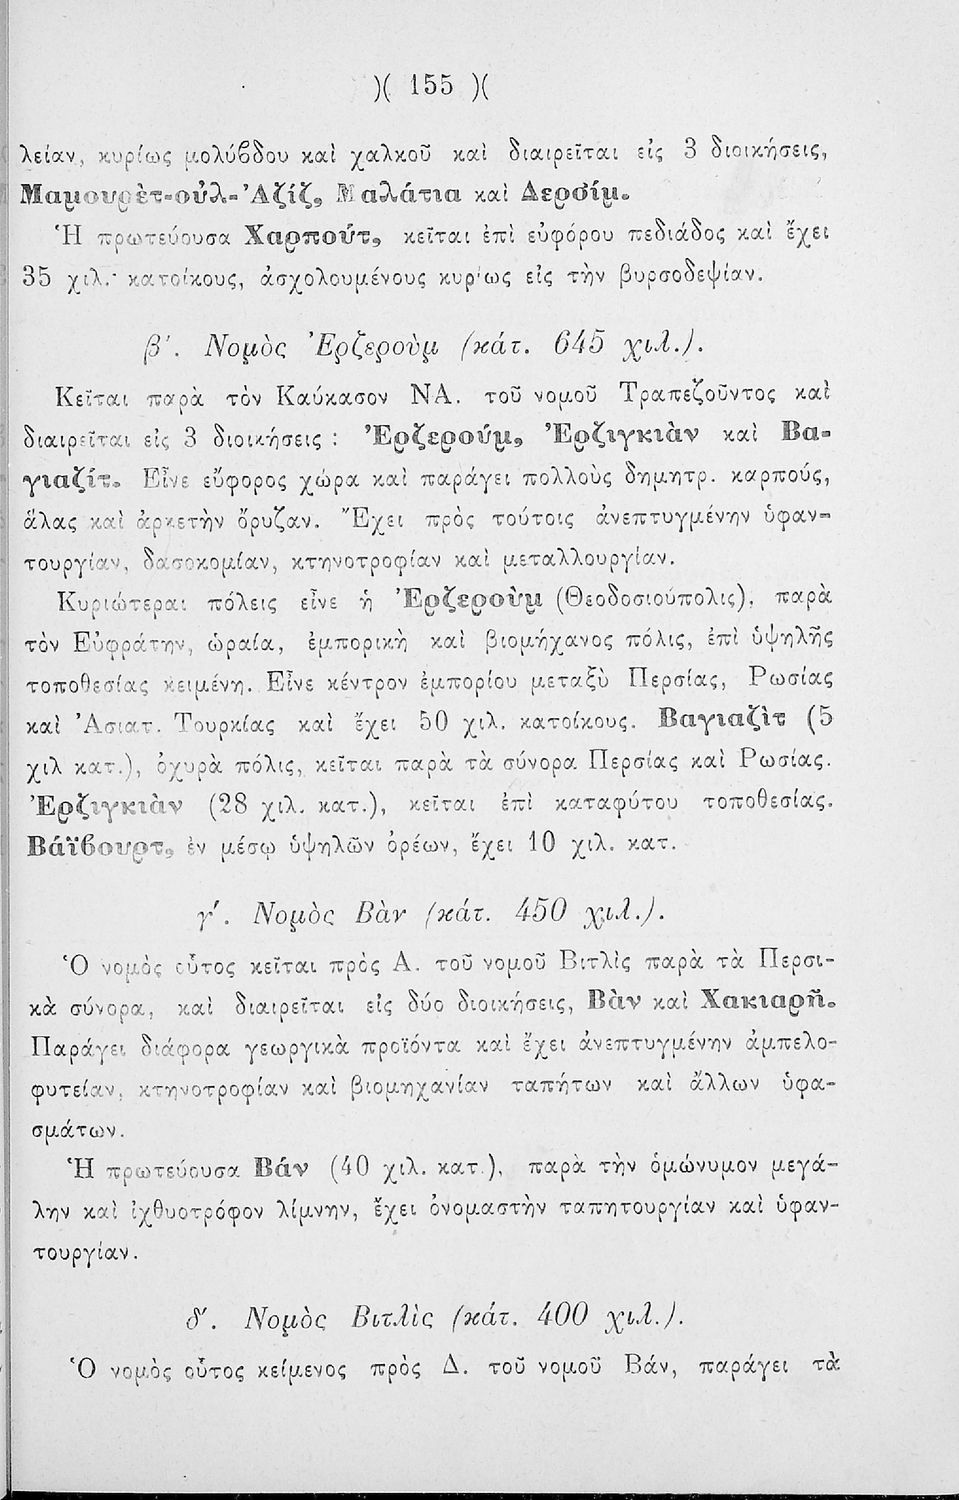 )( 155 )(
λείαν, κυρίως μολύβδου καὶ χαλκοῦ καὶ διαιρεῖται εἰς 3 διοικήσεις,
Μαμουρὲτ-οὐλ-Ἀζίζ, Μαλάτια καὶ Δερσίμ.
Ἡ πρωτεύουσα Χαρπούτ, κεῖται ἐπὶ εὐφόρου πεδιάδος καὶ ἔχει
35 χιλ.· κατοίκους, ἀσχολουμένους κυρίως εἰς τὴν βυρσοδεψίαν.
β΄. Νομὸς Ἐρζεροὺμ (κάτ. 645 χιλ.).
Κεῖται παρὰ τὸν Καύκασον ΝΑ. τοῦ νομοῦ Τραπεζοῦντος καὶ
διαιρεῖται εἰς 3 διοικήσεις : Ἐρζερούμ, Ἐρζιγκιὰν καὶ Βα-
γιαζίτ. Εἶνε εὔφορος χώρα καὶ παράγει πολλοὺς δημητρ. καρπούς,
ἅλας καὶ ἀρκετὴν ὄρυζαν. Ἔχει πρὸς τούτοις ἀνεπτυγμένην ὑφαν-
τουργίαν, δασοκομίαν, κτηνοτροφίαν καὶ μεταλλουργίαν.
Κυριώτεραι πόλεις εἶνε ἡ Ἐρζεροὺμ (Θεοδοσιούπολις), παρὰ
τὸν Εὐφράτην, ὡραία, ἐμπορικὴ καὶ βιομήχανος πόλις, ἐπὶ ὑψηλῆς
τοποθεσίας κειμένη. Εἶνε κέντρον ἐμπορίου μεταξὺ Περσίας, Ρωσίας
καὶ Ἀσιατ. Τουρκίας καὶ ἔχει 50 χιλ. κατοίκους. Βαγιαζὶτ (5
χιλ κατ.), ὀχυρὰ πόλις, κεῖται παρὰ τὰ σύνορα Περσίας καὶ Ρωσίας.
Ἐρζιγκιὰν (28 χιλ. κατ.), κεῖται ἐπὶ καταφύτου τοποθεσίας.
Βάϊβουρτ, ἐν μέσῳ ὑψηλῶν ὀρέων, ἔχει 10 χιλ. κατ.
γ΄. Νομὸς Βὰν (κάτ. 450 χιλ.).
Ὁ νομὸς οὗτος κεῖται πρὸς Α. τοῦ νομοῦ Βιτλὶς παρὰ τὰ Περσι-
κὰ σύνορα, καὶ διαιρεῖται εἰς δύο διοικήσεις, Βὰν καὶ Χακιαρῆ.
Παράγει διάφορα γεωργικὰ προϊόντα καὶ ἔχει ἀνεπτυγμένην ἀμπελο-
φυτείαν, κτηνοτροφίαν καὶ βιομηχανίαν ταπήτων καὶ ἄλλων ὑφα-
σμάτων.
Ἡ πρωτεύουσα Βάν (40 χιλ. κατ.), παρὰ τὴν ὁμώνυμον μεγά-
λην καὶ ἰχθυοτρόφον λίμνην, ἔχει ὀνομαστὴν ταπητουργίαν καὶ ὑφαν-
τουργίαν.
δ΄. Νομὸς Βιτλὶς (κάτ. 400 χιλ.).
Ὁ νομὸς οὗτος κείμενος πρὸς Δ. τοῦ νομοῦ Βάν, παράγει τὰ